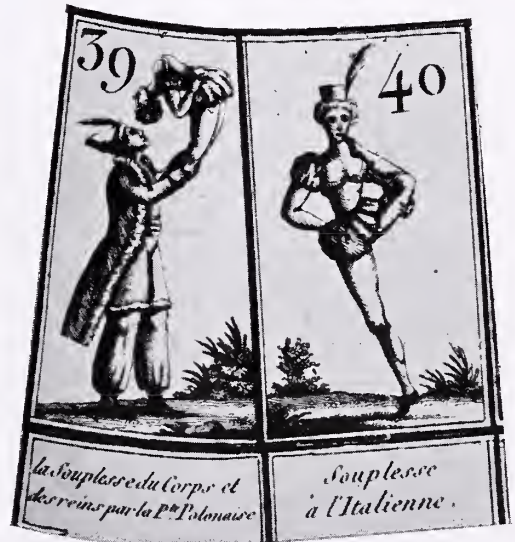 39
la Souplesse du Corps et
des reins par la Pte Polonaise
40
Souplesse
à l'Italienne.